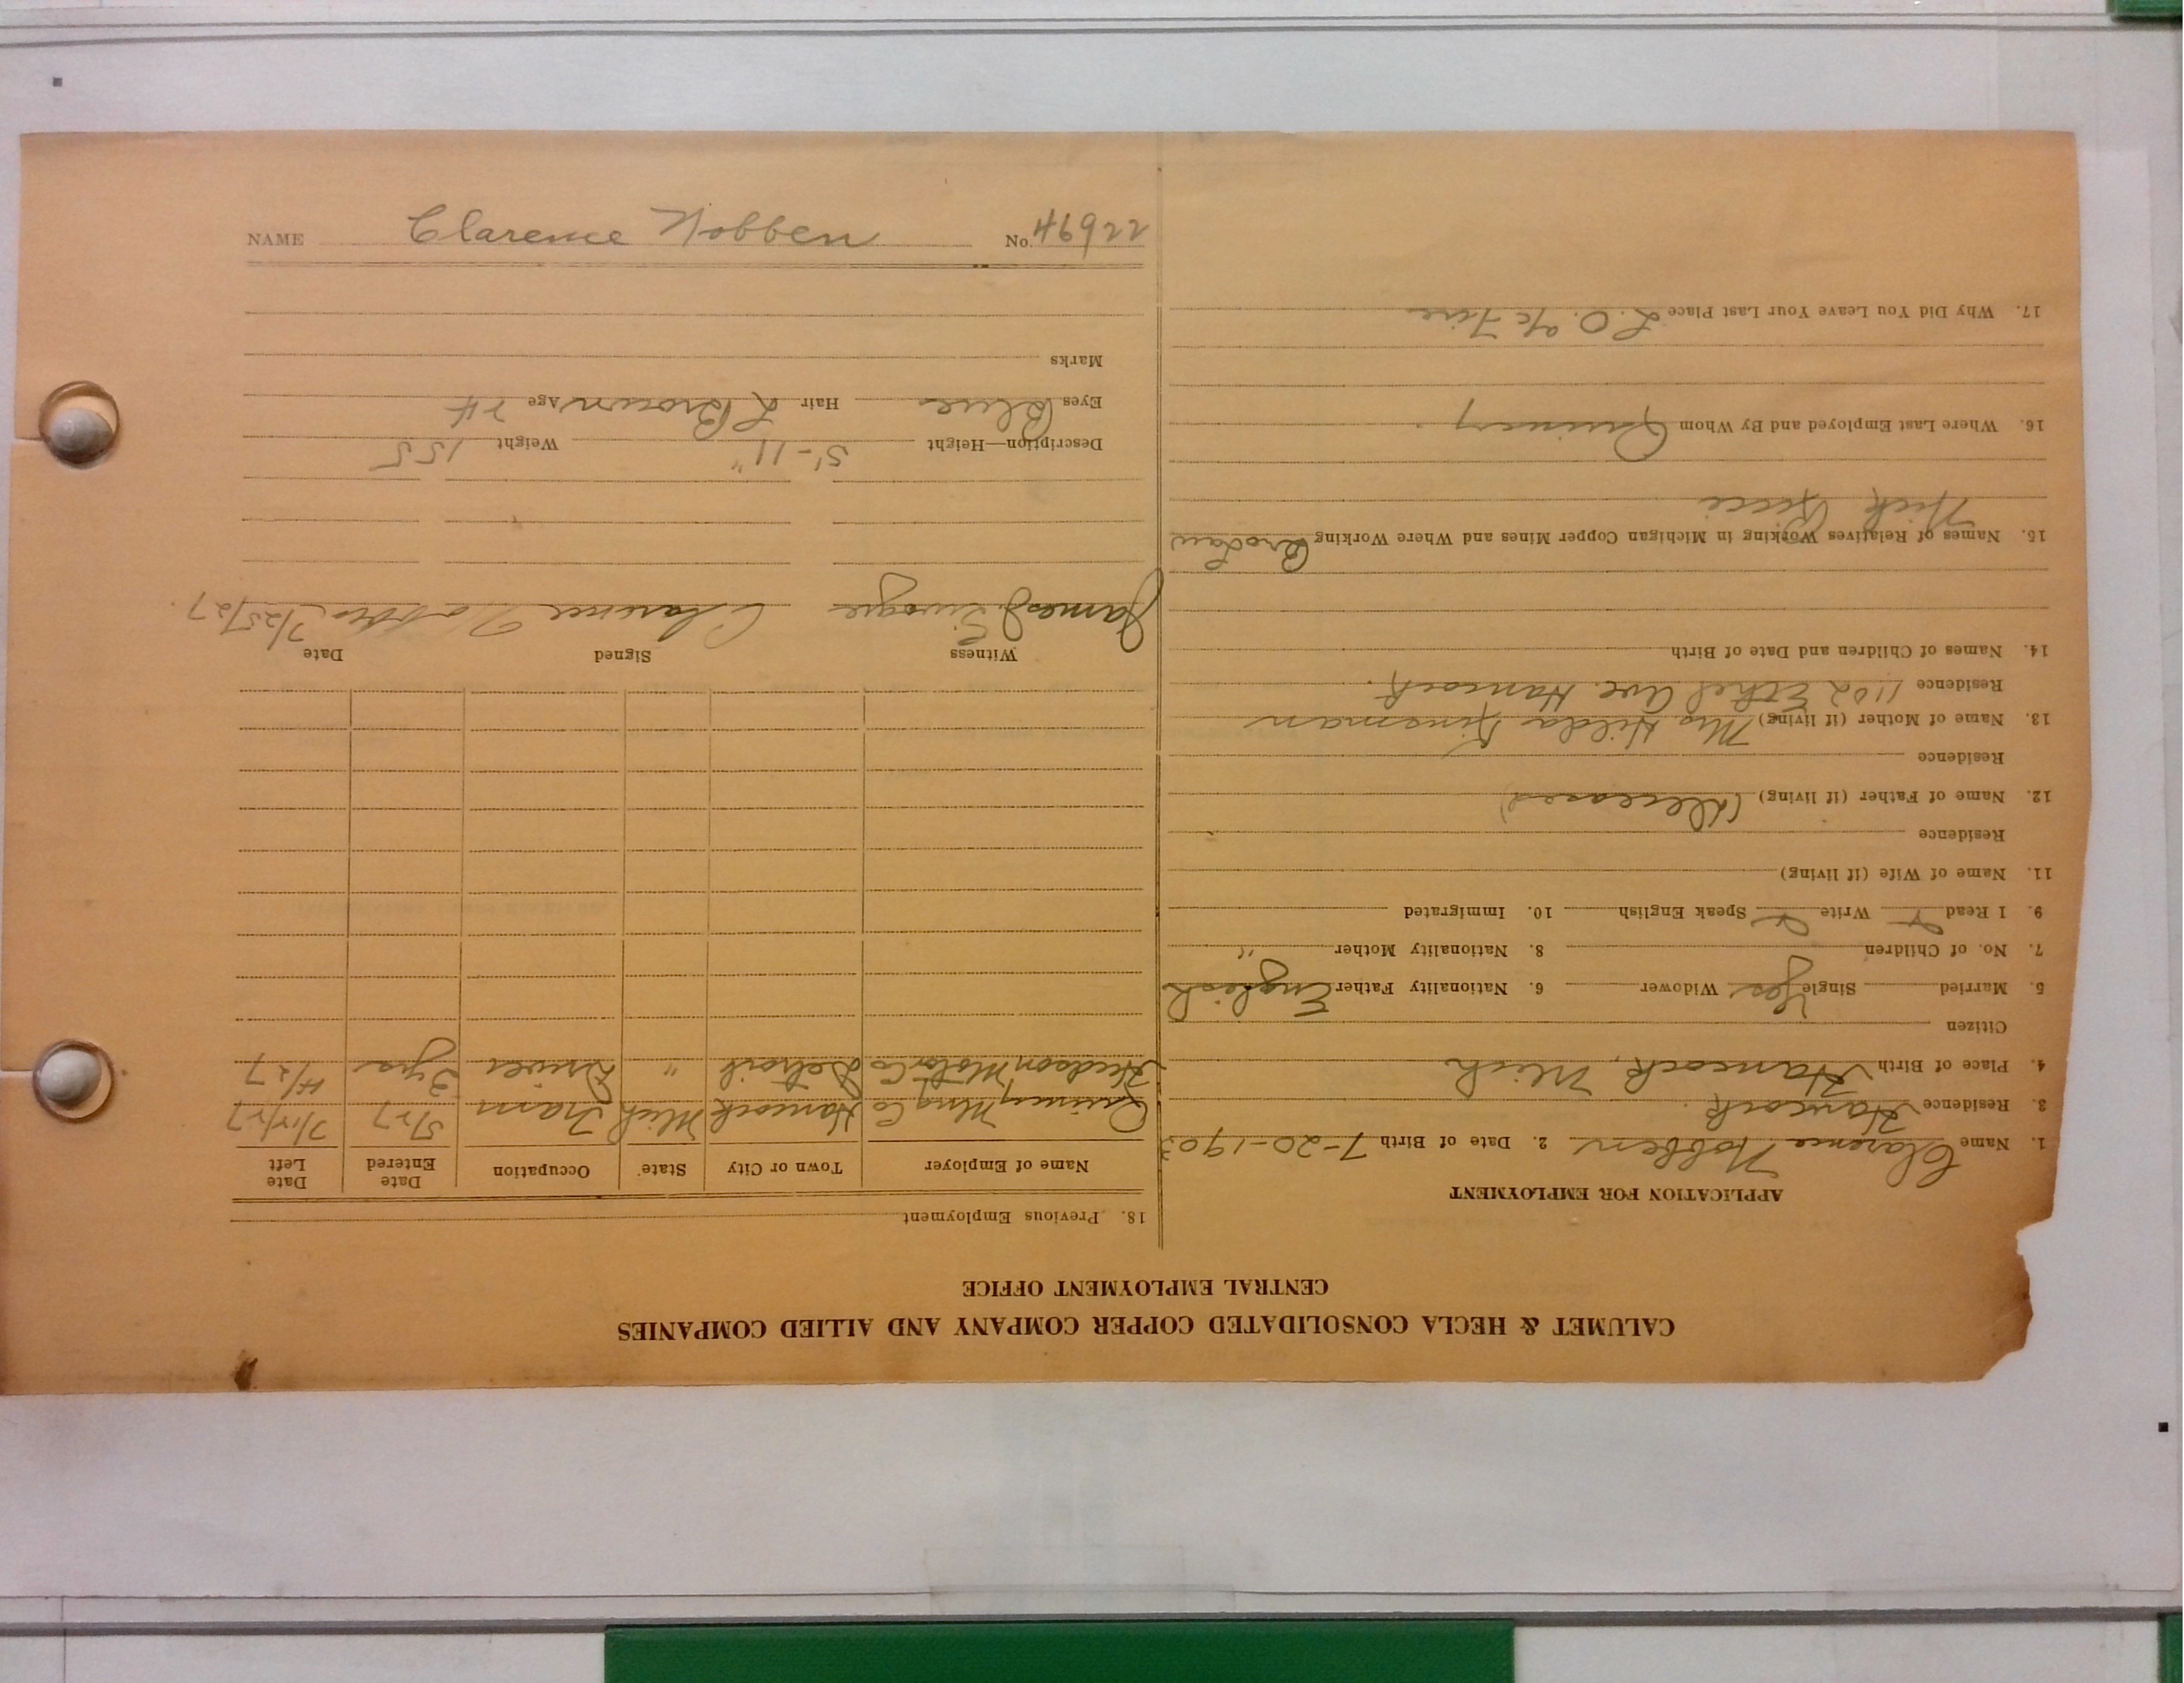 CALUMET & HECLA CONSOLIDATED COPPER COMPANY AND ALLIED COMPANIES
CENTRAL EMPLOYMENT OFFICE
APPLICATION FOR EMPLOYMENT
1. Name Clarence Nobben 2. Date of Birth 7-20-1903
3. Residence Hancock
4. Place of Birth Hancock, Mich
Citizen
5. Married Single Yes Widower 6. Nationality Father English
7. No. of Children 8. Nationality Mother "
9. I Read Write Speak English 10. Immigrated
11. Name of Wife (if living)
Residence
12. Name of Father (if living) (deceased)
Residence
13. Name of Mother (if living) Mrs Hilda Kinsman
Residence 1102 Ethel ave. Hancock.
14. Names of Children and Date of Birth
15. Names of Relatives Working in Michigan Copper Mines and Where Working BroLaw
Nick
16. Where Last Employed and By Whom Quincy
17. Why Did You Leave Your Last Place L.O. a/c Fire
18. Previous Employment
Name of Employer Town or City State Occupation Date Entered Date Left
Quincy Mng Co Hancock Mich Tram 5/27 7/15/27
Hudson Motor Co Detroit " Driver 3 yrs 4/27
Witness Signed Date
James Clarence Nobben 7/25/27
Description—Height 5'-11" Weight 155
Eyes Blue Hair L Brown Age 24
Marks
NAME Clarence Nobben No. 46922